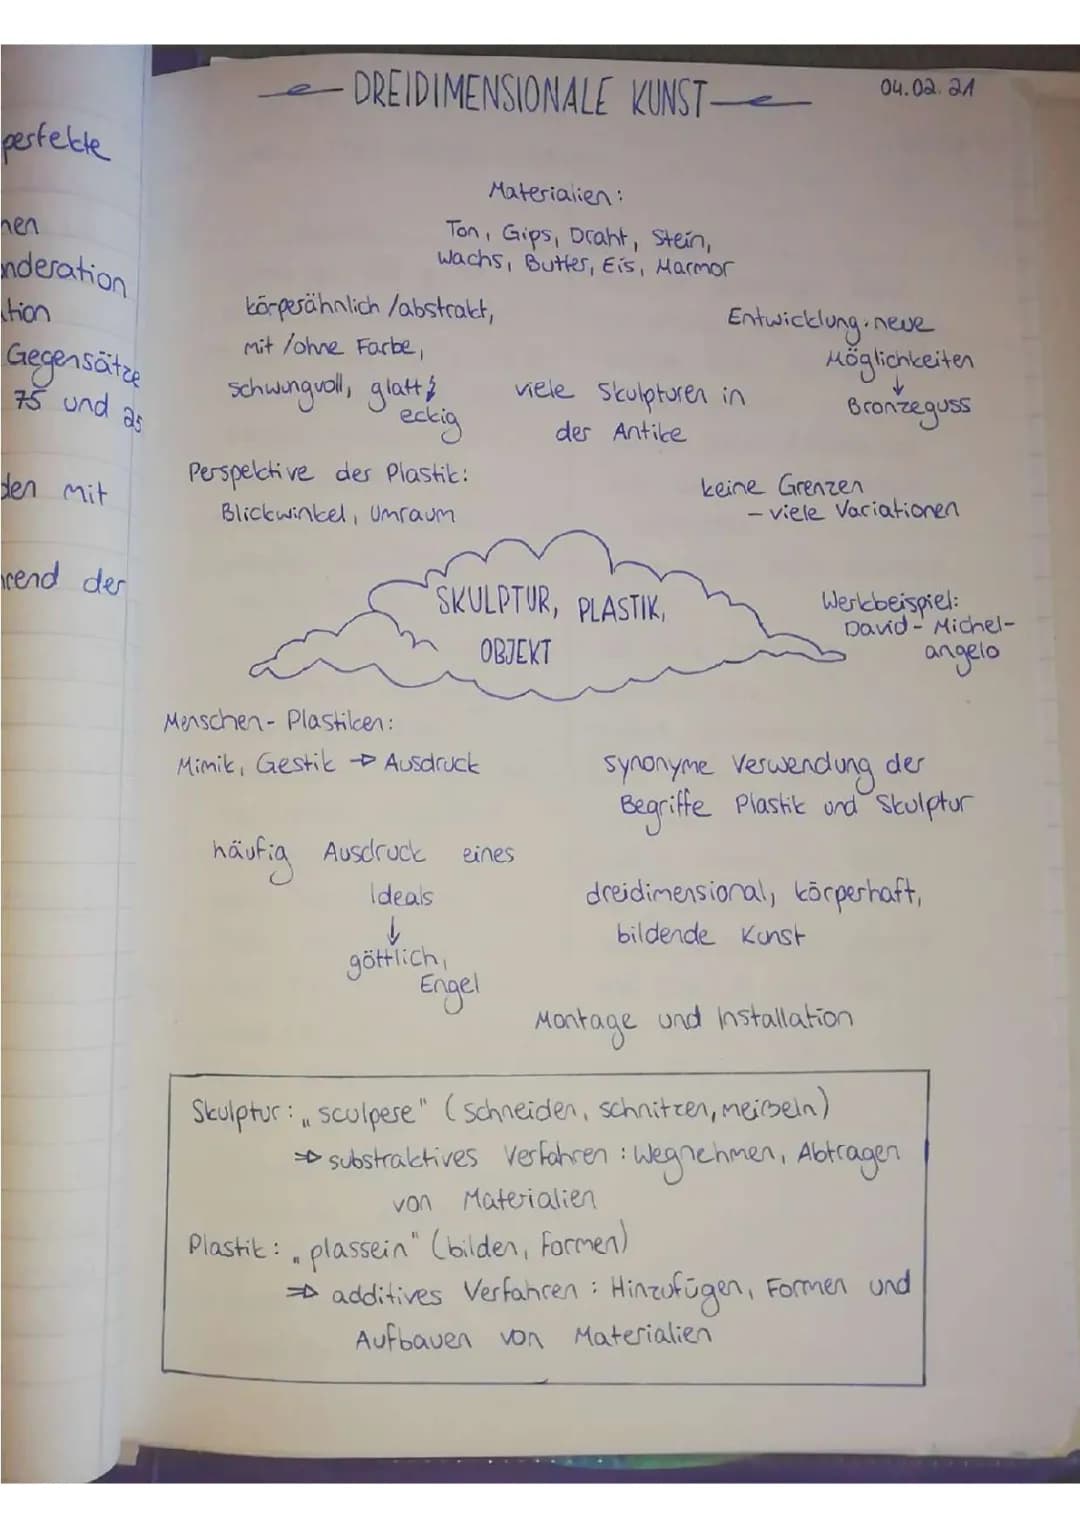 DREIDIMENSIONALE KUNST
04.02.21
Materialien:
Ton, Gips, Draht, Stein,
Wachs, Butter, Eis, Marmor
körperähnlich / abstrakt,
mit / ohne Farbe,
schwungvoll, glatt
eckig
Entwicklung: neue
Möglichkeiten
↓
Bronzeguss
viele Skulpturen in
der Antike
Perspektive der Plastik:
Blickwinkel, Umraum
keine Grenzen
- viele Variationen
SKULPTUR, PLASTIK,
OBJEKT
Werkbeispiel:
David - Michel-
angelo
Menschen - Plastiken:
Mimik, Gestik → Ausdruck
synonyme Verwendung der
Begriffe Plastik und Skulptur
häufig Ausdruck eines
Ideals
↓
göttlich,
Engel
dreidimensional, körperhaft,
bildende Kunst
Montage und Installation
Skulptur: „sculpere" (schneiden, schnitzen, meißeln)
⇒ substraktives Verfahren: Wegnehmen, Abtragen
von Materialien
Plastik: „plassein" (bilden, formen)
⇒ additives Verfahren: Hinzufügen, Formen und
Aufbauen von Materialien
perfekte
nen
nderation
tion
Gegensätze
75 und 25
den mit
rend der